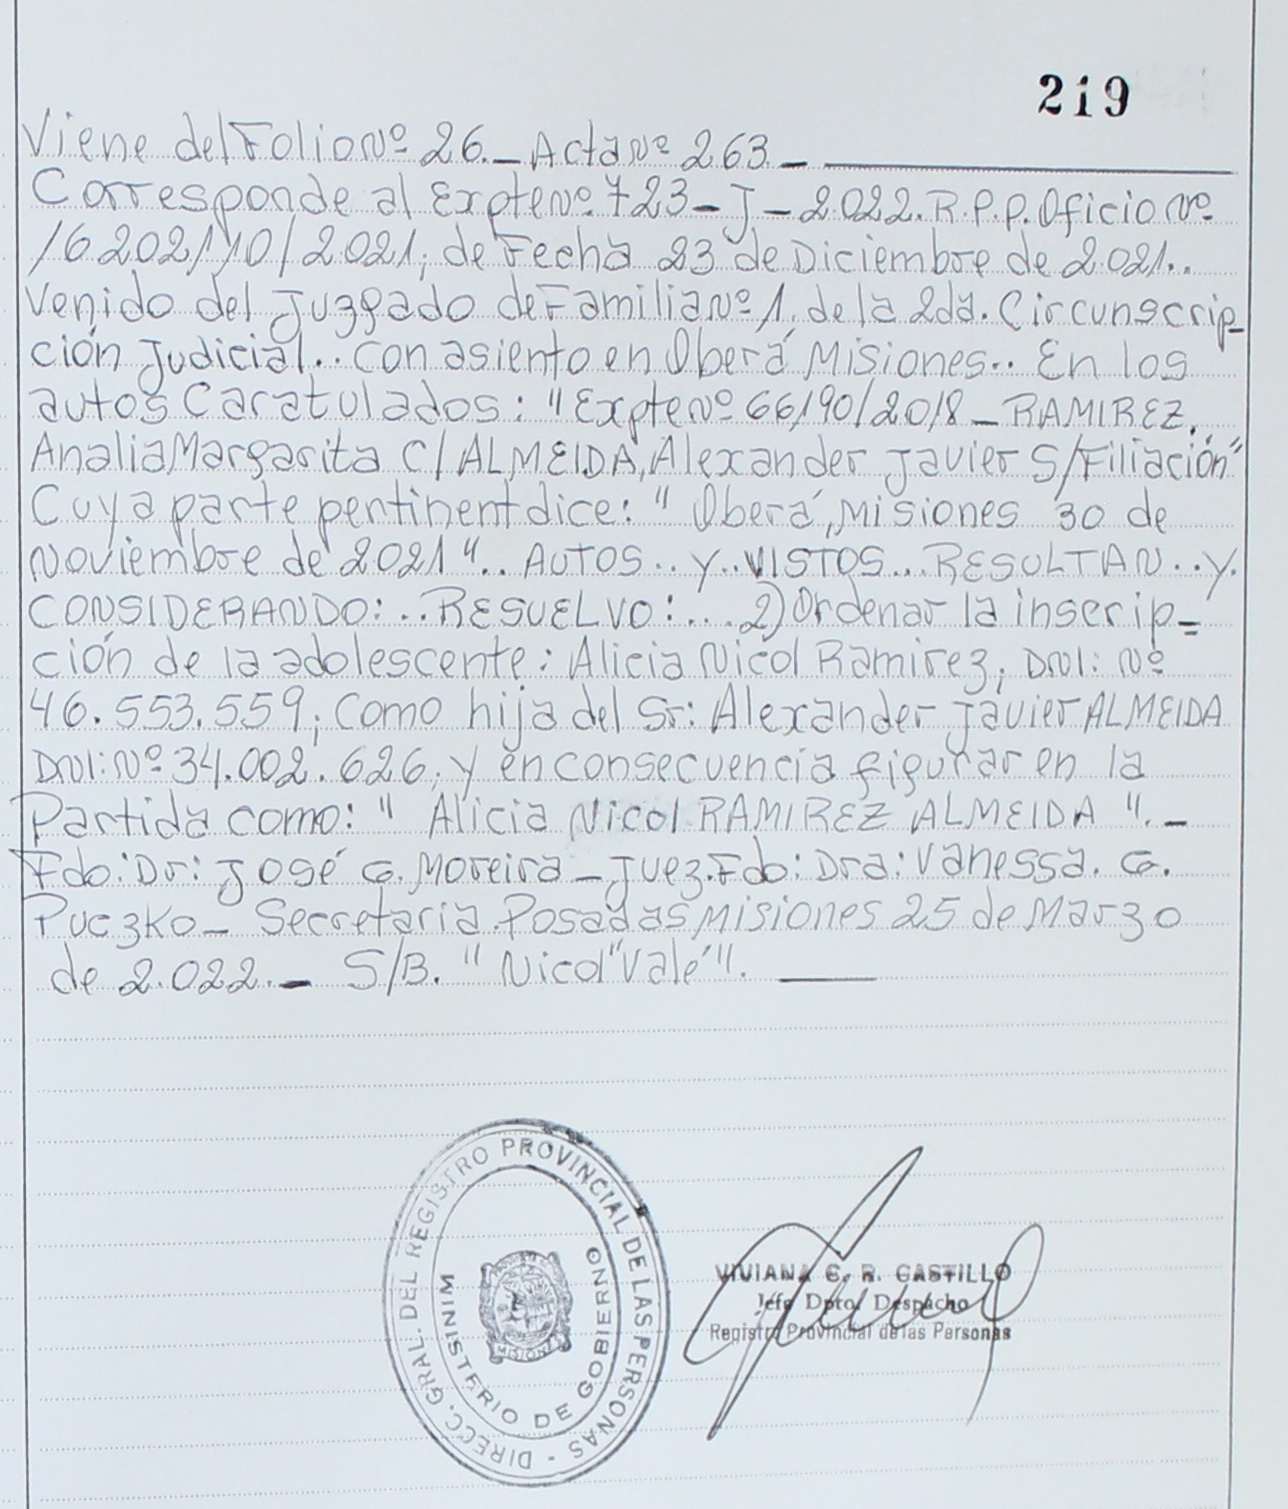 219
Viene del Folio Nº 26._ Acta Nº 263._
Corresponde al Expte Nº 723_J_2.022. R.P.P. Oficio Nº
16.202/10/2.021, de Fecha 23 de Diciembre de 2.021..
Venido del Juzgado de Familia Nº 1, de la 2da. Circunscrip_
ción Judicial.. Con asiento en Oberá Misiones.. En los
autos Caratulados: "Expte Nº 66190/2018_RAMIREZ,
Analia Margarita C/ ALMEIDA, Alexander Javier S/Filiación"
Cuya parte pertinent dice: " Oberá, Misiones 30 de
Noviembre de 2021".. AUTOS.. y.. VISTOS... RESULTAN.. y.
CONSIDERANDO:.. RESUELVO:.... 2) Ordenar la inscrip=
ción de la adolescente: Alicia Nicol Ramirez, DNI: Nº
46.553.559, Como hija del Sr: Alexander Javier ALMEIDA
DNI: Nº 34.002.626, y en consecuencia figurar en la
Partida como: " Alicia Nicol RAMIREZ ALMEIDA "._
Fdo: Dr: José G. Moreira_Juez. Fdo: Dra: Vanessa. G.
Puczko_ Secretaria. Posadas Misiones 25 de Marzo
de 2.022._ S/B. " Nicol "Vale" ".
DIRECC. GRAL. DEL REGISTRO PROVINCIAL DE LAS PERSONAS -
MINISTERIO DE GOBIERNO
MISIONES
VIVIANA C. R. CASTILLO
Jefe Dpto. Despacho
Registro Provincial de las Personas